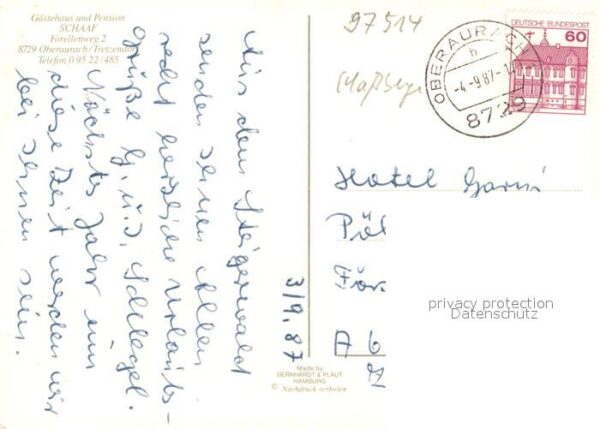 Gästehaus und Pension
SCHAAF
Forellenweg 2
8729 Oberaurach/Tretzendorf
Telefon 0 95 22/485
Aus dem Steigerwald
senden Ihnen Allen
recht herzliche Urlaubs-
grüße G. u. J. Schlegel.
Nächstes Jahr um
diese Zeit werden wir
bei Ihnen sein.
3/9.87
97514
DEUTSCHE BUNDESPOST
60
OBERAURACH
b
-4.-9.87-1
8729
Hotel Garni
Pöl
För
A 6
privacy protection
Datenschutz
Made by
BERNHARDT & PLAUT
HAMBURG
© Nachdruck verboten